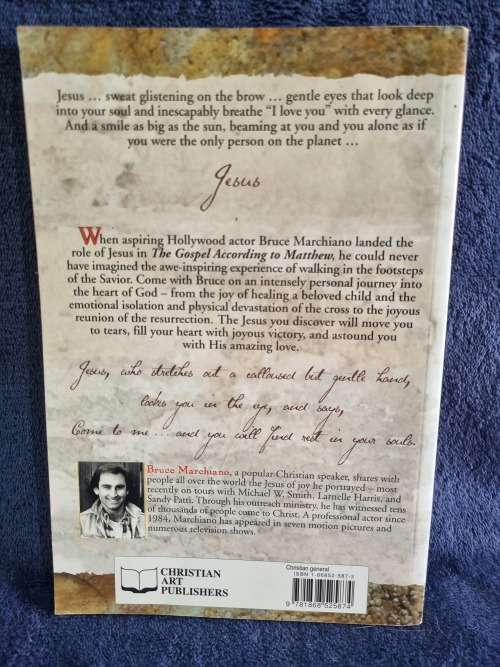 Jesus … sweat glistening on the brow … gentle eyes that look deep
into your soul and inescapably breathe “I love you” with every glance.
And a smile as big as the sun, beaming at you and you alone as if
you were the only person on the planet …
Jesus
When aspiring Hollywood actor Bruce Marchiano landed the
role of Jesus in The Gospel According to Matthew, he could never
have imagined the awe-inspiring experience of walking in the footsteps
of the Savior. Come with Bruce on an intensely personal journey into
the heart of God – from the joy of healing a beloved child and the
emotional isolation and physical devastation of the cross to the joyous
reunion of the resurrection. The Jesus you discover will move you
to tears, fill your heart with joyous victory, and astound you
with His amazing love.
Jesus, who stretches out a calloused but gentle hand,
looks you in the eye, and says,
Come to me ... and you will find rest in your souls.
Bruce Marchiano, a popular Christian speaker, shares with
people all over the world the Jesus of joy he portrayed – most
recently on tours with Michael W. Smith, Larnelle Harris, and
Sandy Patti. Through his outreach ministry, he has witnessed tens
of thousands of people come to Christ. A professional actor since
1984, Marchiano has appeared in seven motion pictures and
numerous television shows.
CHRISTIAN
ART
PUBLISHERS
Christian general
ISBN 1-86852-587-3
9 781868 525874